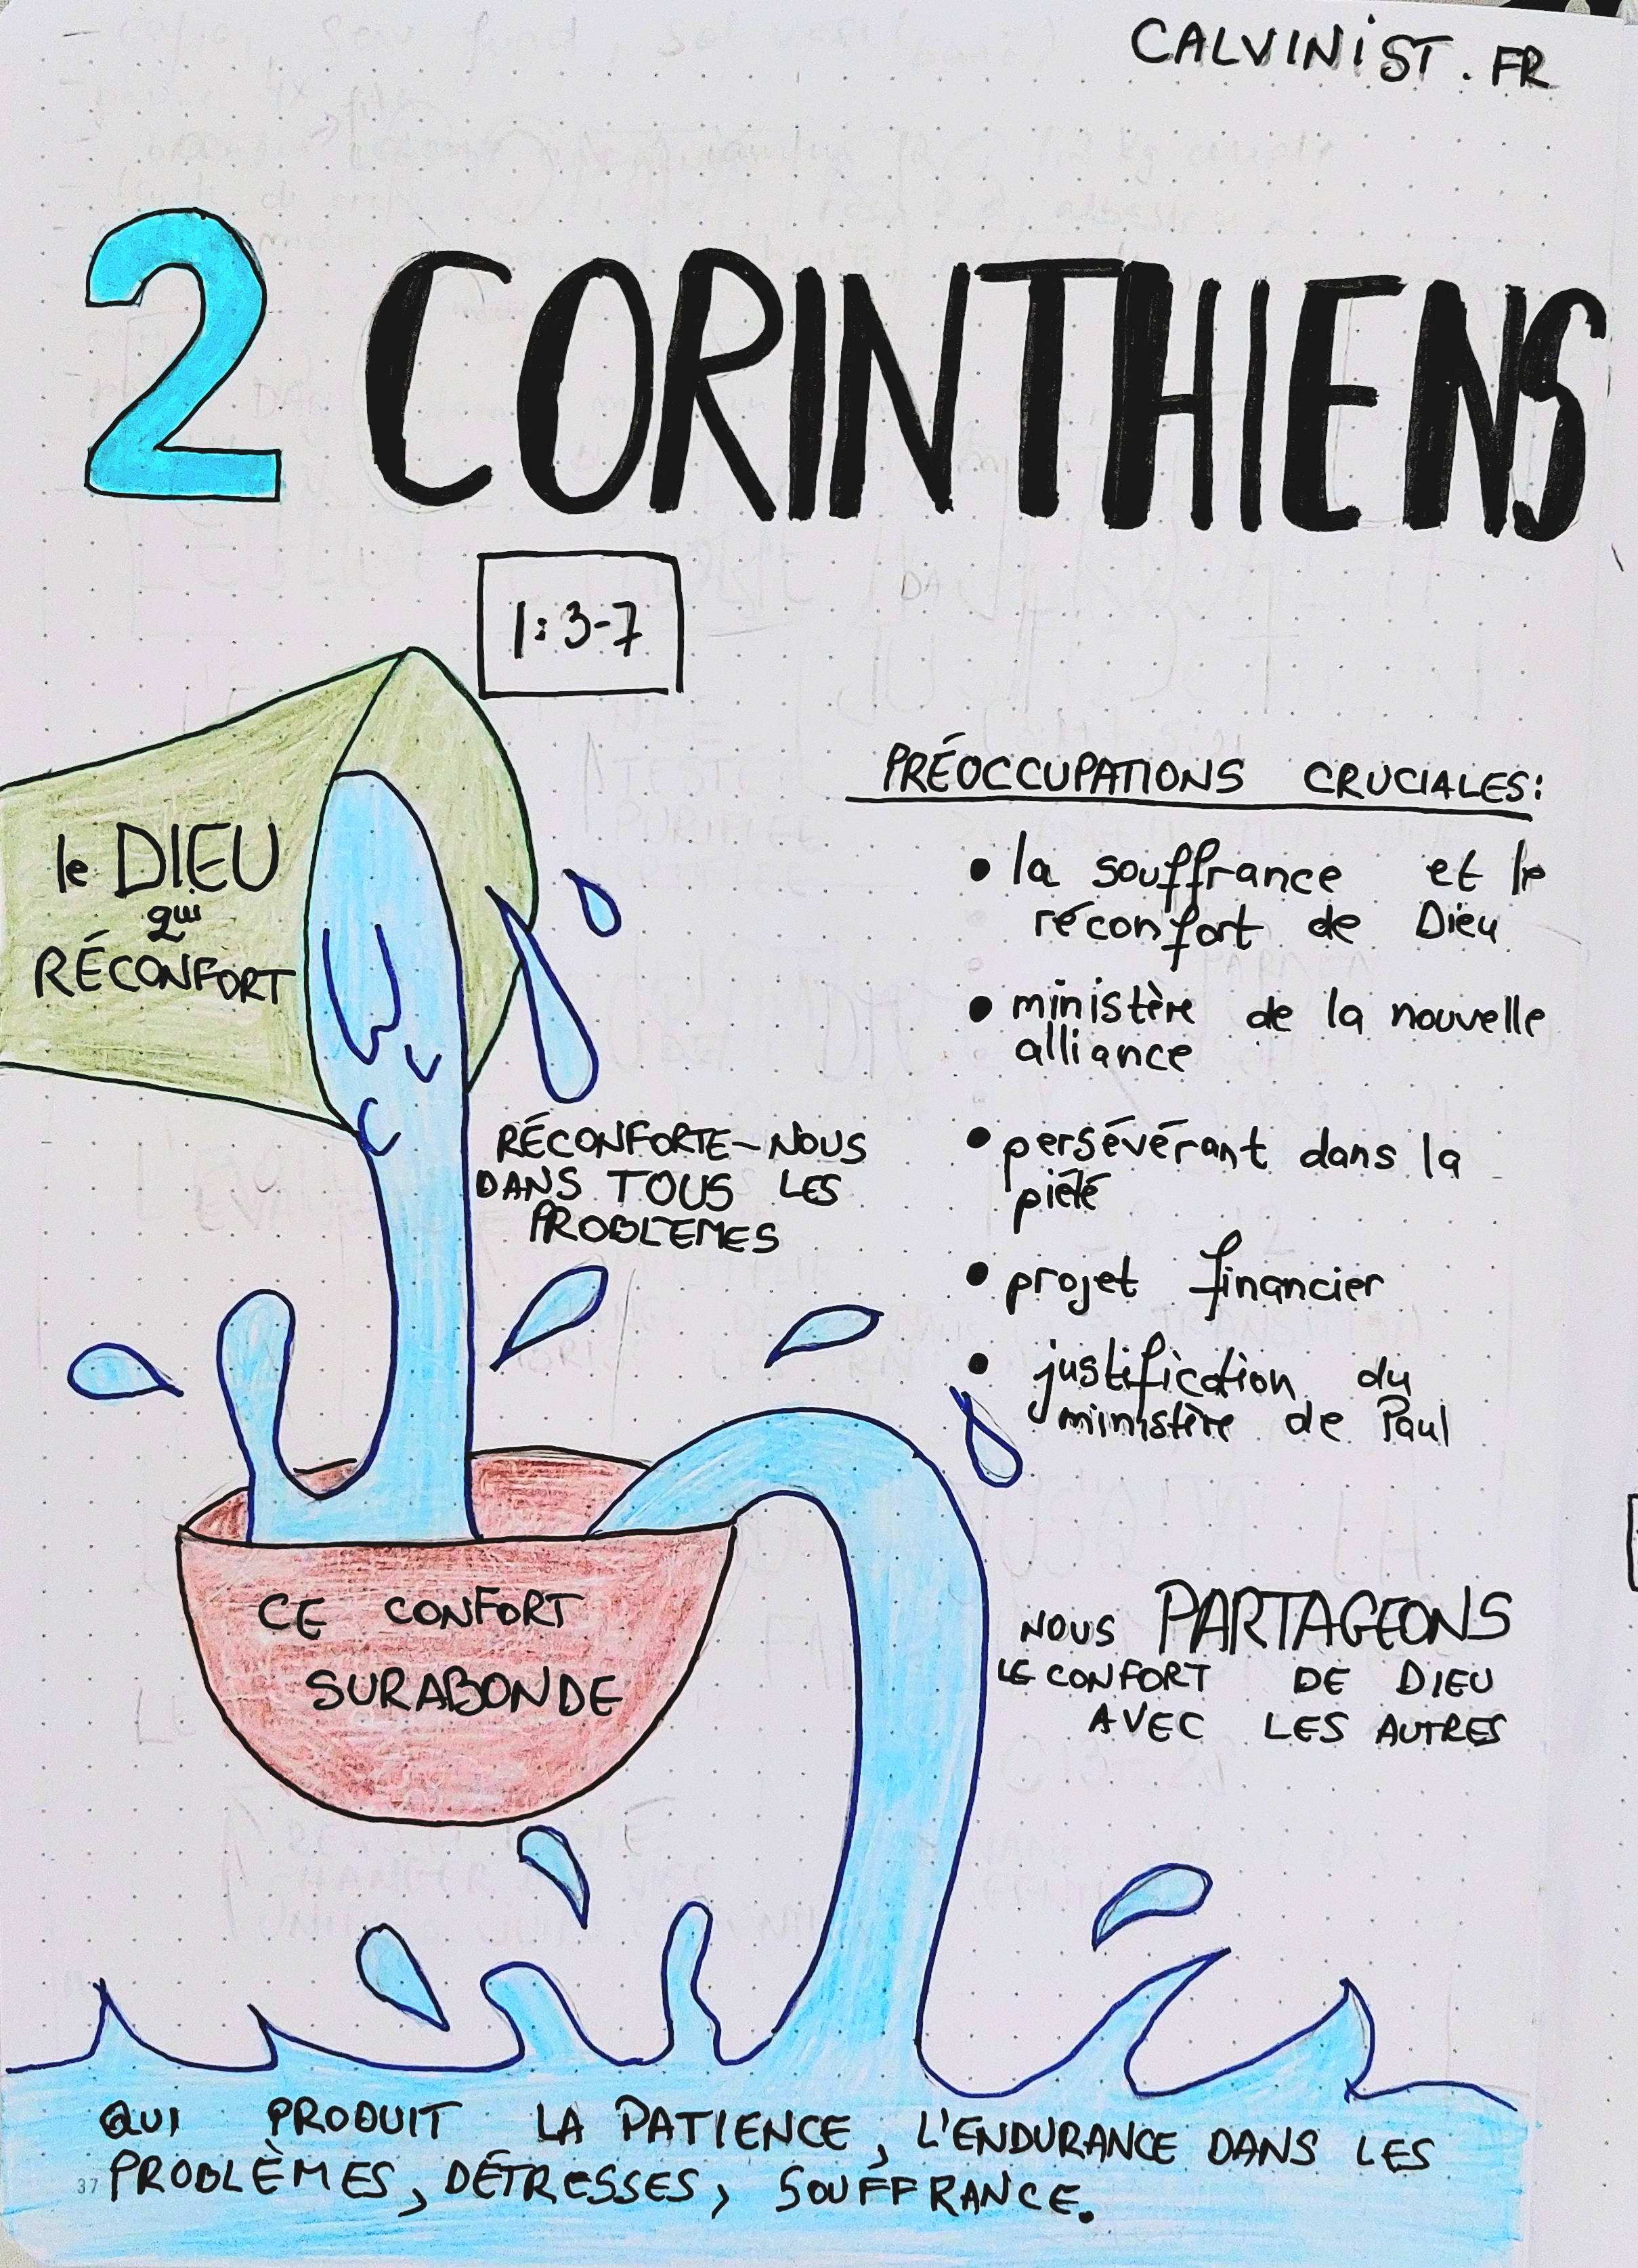 CALVINIST.FR
2 CORINTHIENS
1:3-7
le DIEU
qui
RÉCONFORT
RÉCONFORTE-NOUS
DANS TOUS LES
PROBLEMES
CE CONFORT
SURABONDE
PRÉOCCUPATIONS CRUCIALES:
• la souffrance et le
réconfort de Dieu
• ministère de la nouvelle
alliance
• persévérant dans la
piété
• projet financier
• justification du
ministère de Paul
NOUS PARTAGEONS
LE CONFORT DE DIEU
AVEC LES AUTRES
QUI PRODUIT LA PATIENCE, L'ENDURANCE DANS LES
PROBLÈMES, DÉTRESSES, SOUFFRANCE.
37